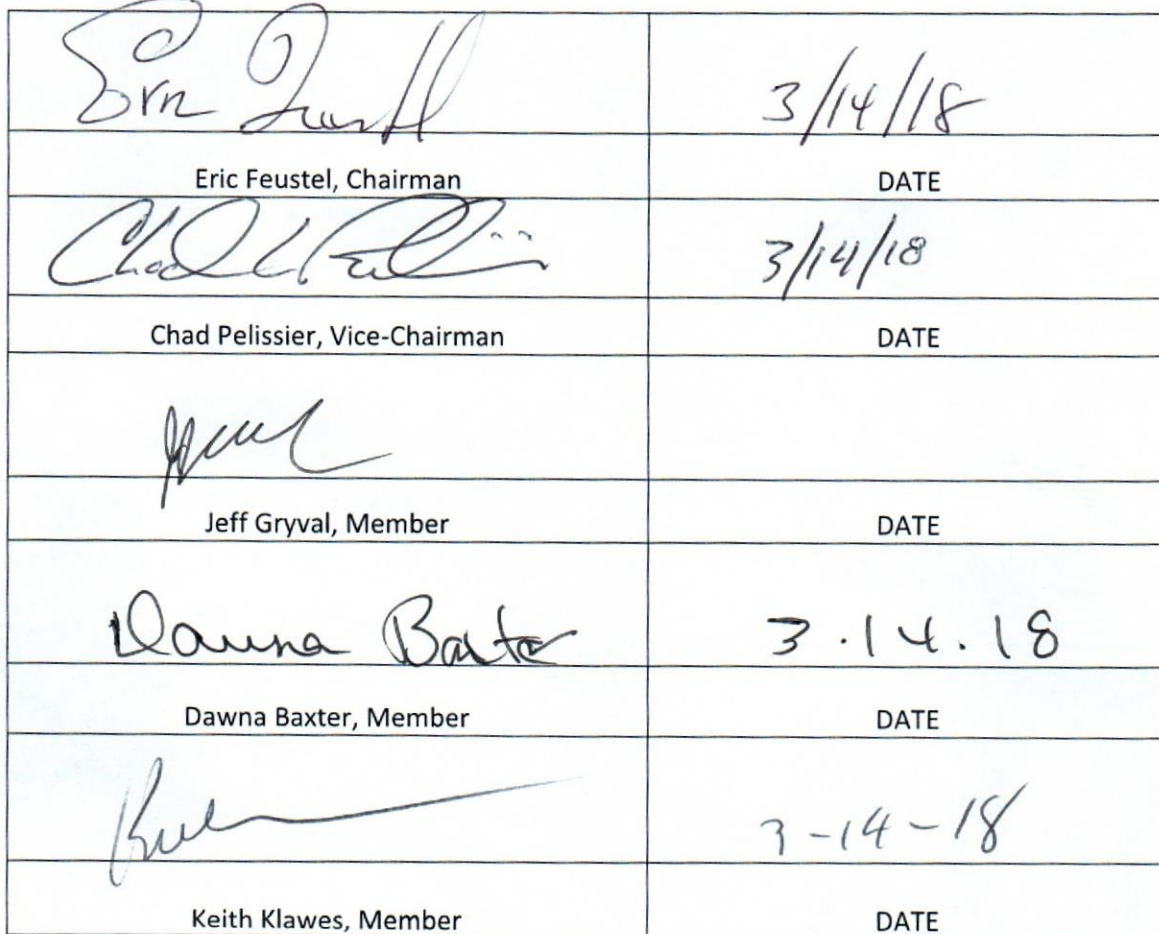 Eric Feustel 3/14/18
Eric Feustel, Chairman DATE
Chad L Pelissier 3/14/18
Chad Pelissier, Vice-Chairman DATE
Jeff Gryval, Member DATE
Dawna Baxter 3.14.18
Dawna Baxter, Member DATE
3-14-18
Keith Klawes, Member DATE